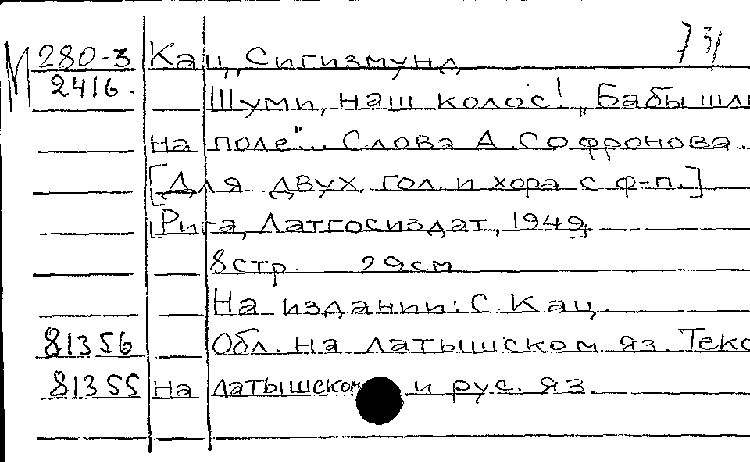 М 280-3 Кац, Сигизмунд 73/
2416. Шуми, наш колос! „Бабы шли
на поле"... Слова А. Софронова.
[Для двух гол. и хора с ф-п.]
Рига, Латгосиздат, 1949,
8 стр. 29 см
На издании: С. Кац.
81356 Обл. на латышском яз. Текс
81355 на латышском и рус. яз.